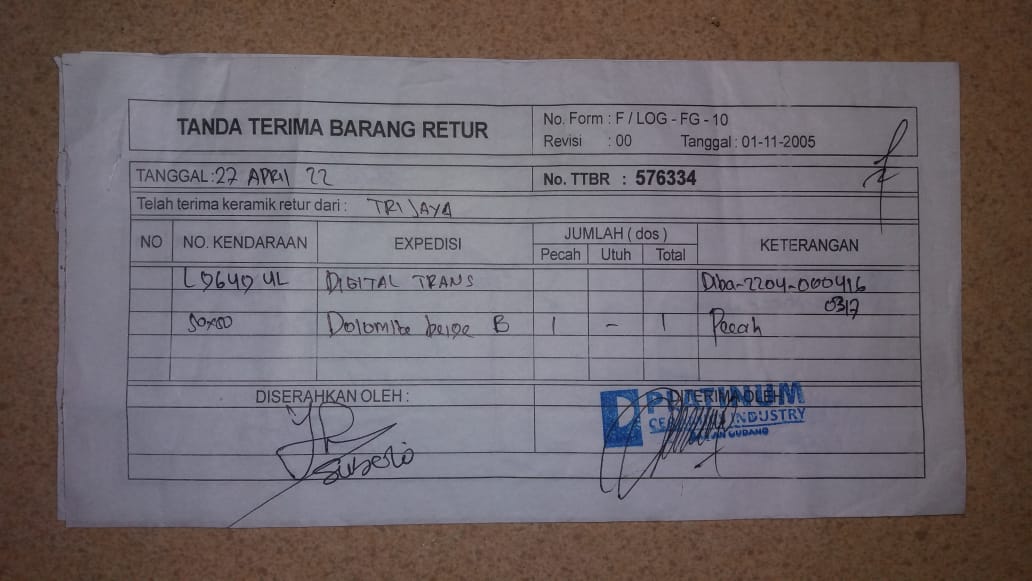 TANDA TERIMA BARANG RETUR
No. Form : F / LOG - FG - 10
Revisi : 00 Tanggal : 01-11-2005
TANGGAL : 27 APRIL 22
No. TTBR : 576334
Telah terima keramik retur dari : TRIJAYA
NO NO. KENDARAAN EXPEDISI JUMLAH ( dos ) KETERANGAN
Pecah Utuh Total
L 9640 UL DIGITAL TRANS Dba-2204-000416
0317
50x50 Dolomite beige B 1 - 1 Pecah
DISERAHKAN OLEH : DITERIMA OLEH
PLATINUM
INDUSTRY
GUDANG